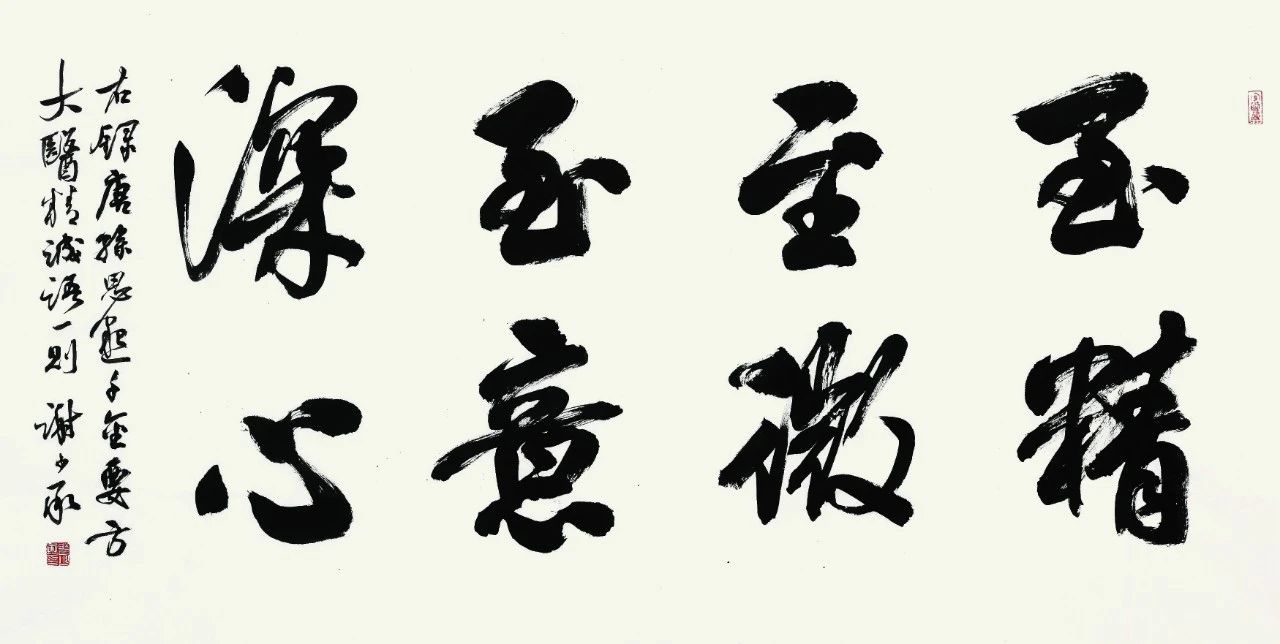 至精
至微
至意
深心
右録唐孫思邈千金要方
大醫精誠語一則 謝少承